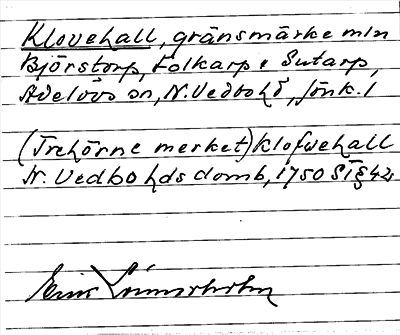 Klovehall, gränsmärke mln
Björstorp, Folkarp o Sutarp,
Adelövs sn, N. Vedbo hd, Jönk. l
(Trehörne merket) klofwehall
N. Vedbo hds domb, 1750 ST § 42